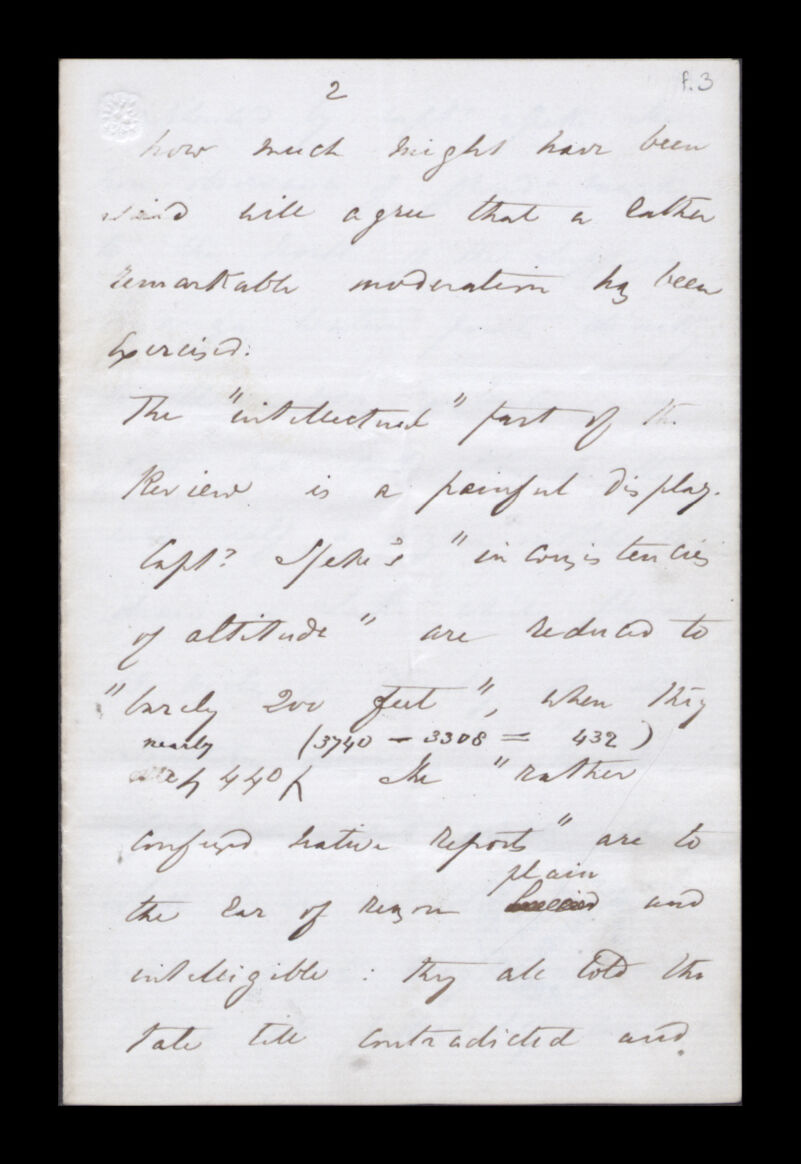 2
f. 3
how much might have been
said will agree that a rather
remarkable moderation has been
exercised.
The "intellectual" part of the
Review is a painful display.
Capt? Speke's "inconsistencies
of altitude" are reduced to
"barely 200 feet", when they
nearly (3740 – 3308 = 432)
are 440 The "rather
confused native reports" are to
plain
the ear of reason and
intelligible : they all told the
tale till contradicted and